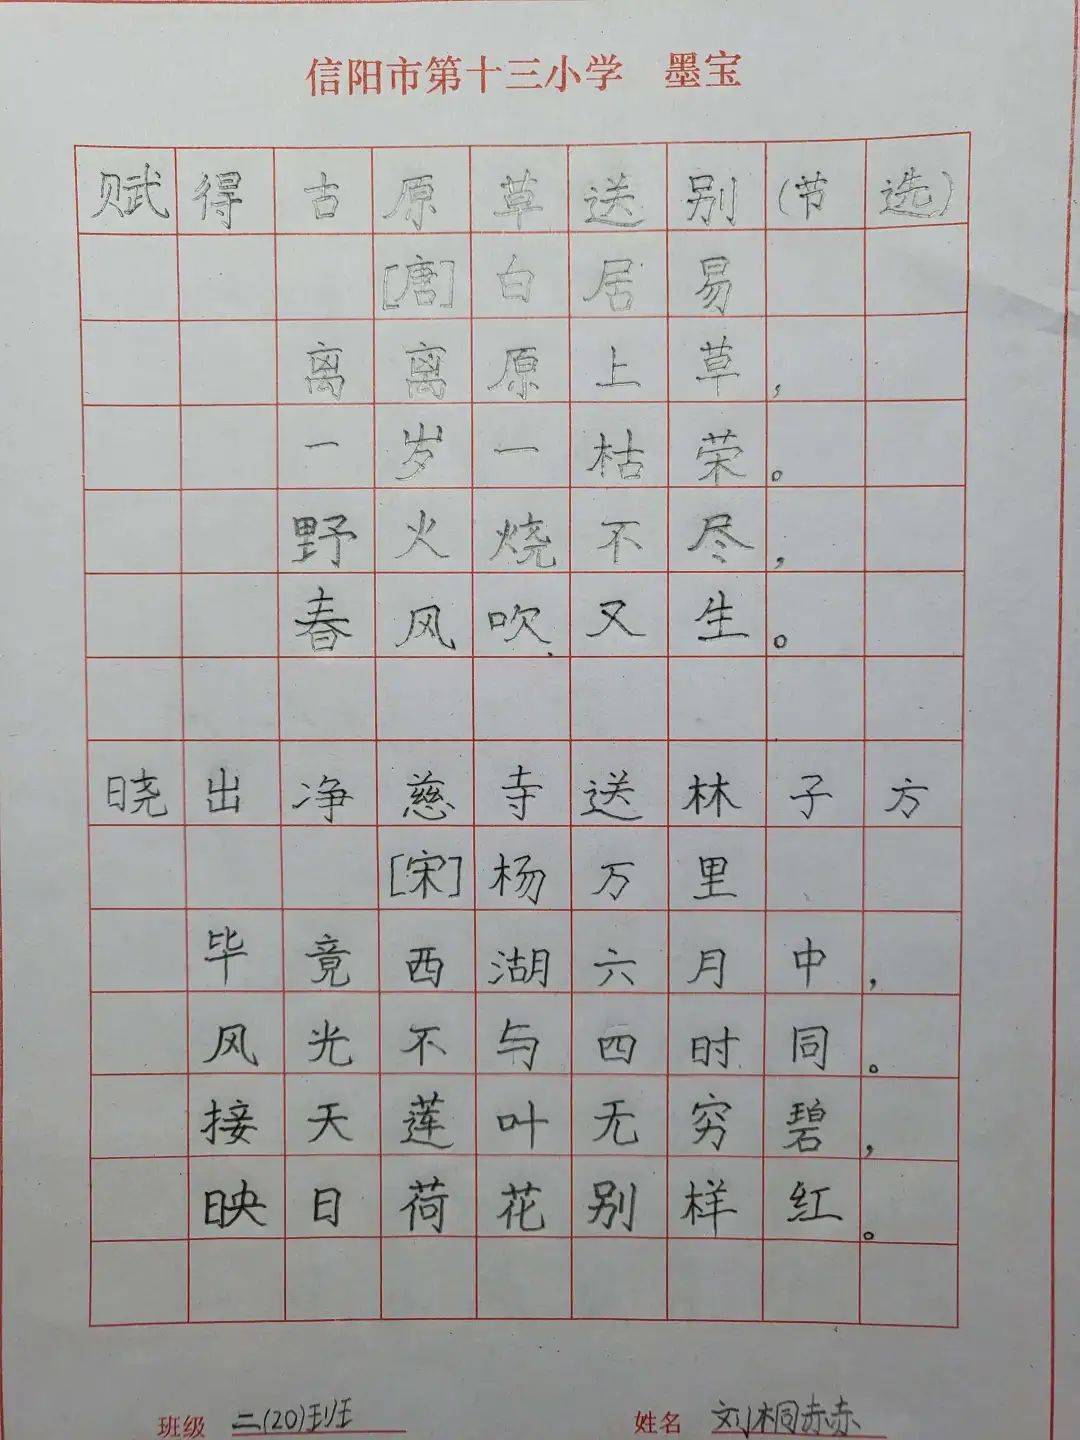 信阳市第十三小学 墨宝
赋得古原草送别(节选)
[唐]白居易
离离原上草，
一岁一枯荣。
野火烧不尽，
春风吹又生。
晓出净慈寺送林子方
[宋]杨万里
毕竟西湖六月中，
风光不与四时同。
接天莲叶无穷碧，
映日荷花别样红。
班级 二(20)班
姓名 刘桐赫